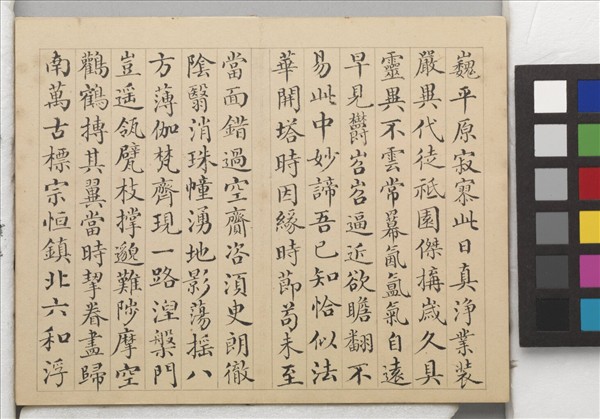 巍平原寂寞此日真浄業裝
嚴異代徒祇園傑搆歲久具
靈異不雲常冪氤氳氣自遠
早見欝岧岧逼近欲瞻翻不
易此中妙諦吾已知恰似法
華開塔時因緣時節苟未至
當面錯過空齎咨湏臾朗徹
陰翳消珠幢湧地影蕩搖八
方薄伽梵齊現一路涅槃門
豈遥瓴甓枝撐邈難陟摩空
鸛鶴摶其翼當時挈眷盡歸
南萬古標宗恒鎮北六和浮